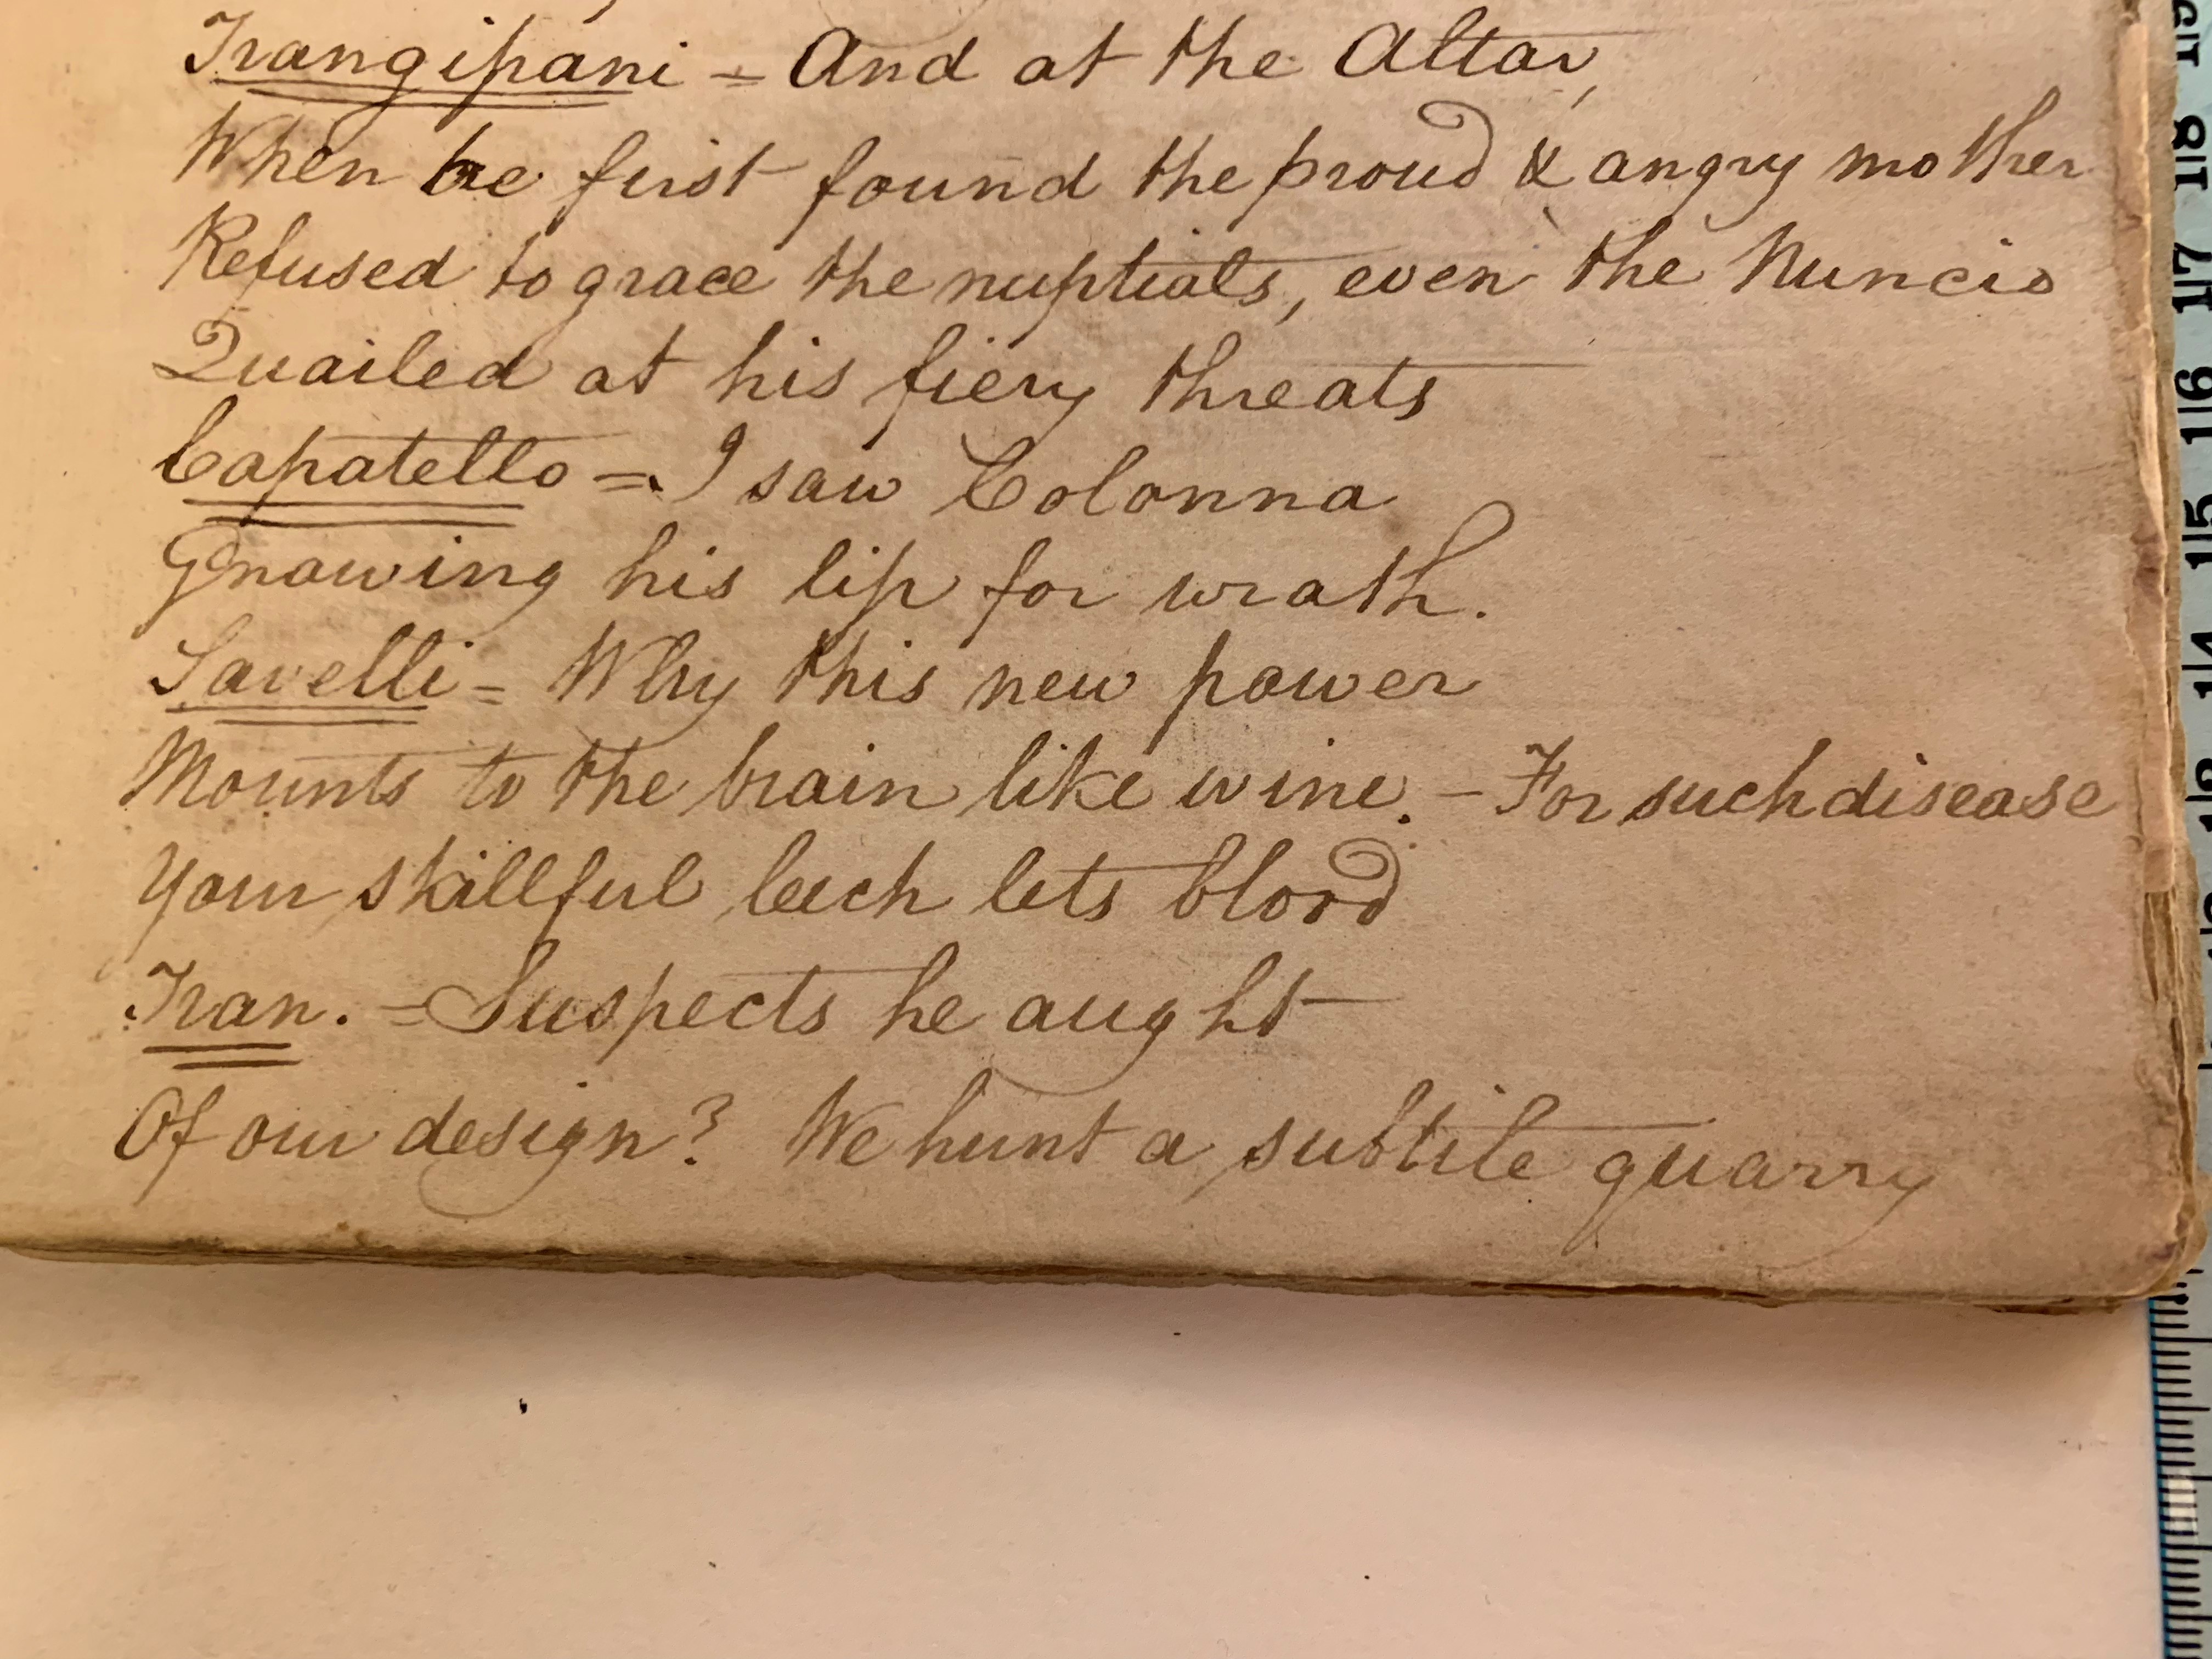 Frangipani = And at the Altar,
When he first found the proud & angry mother
Refused to grace the nuptials, even the Nuncio
Quailed at his fiery threats
Capatello = I saw Colonna
Gnawing his lip for wrath.
Savelli = Why this new power
Mounts to the brain like wine. - For such disease
Your skillful leech lets blood
Fran. = Suspects he aught
Of our design? We hunt a subtile quarry
19
18
17
16
15
14
13